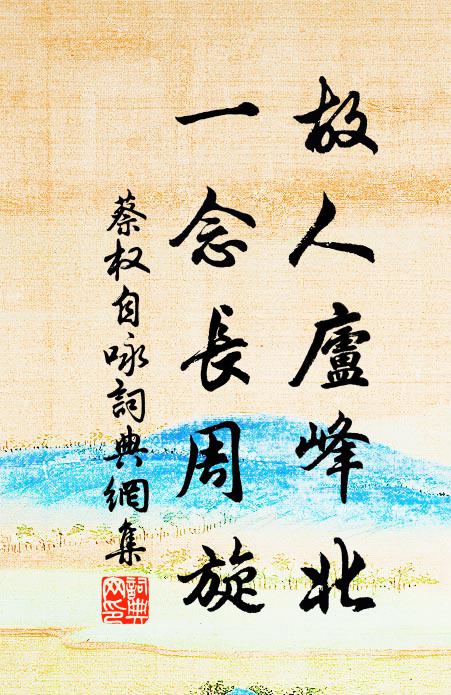 故人廬峰北
一念長周旋
蔡权自咏詞典網集
詞典